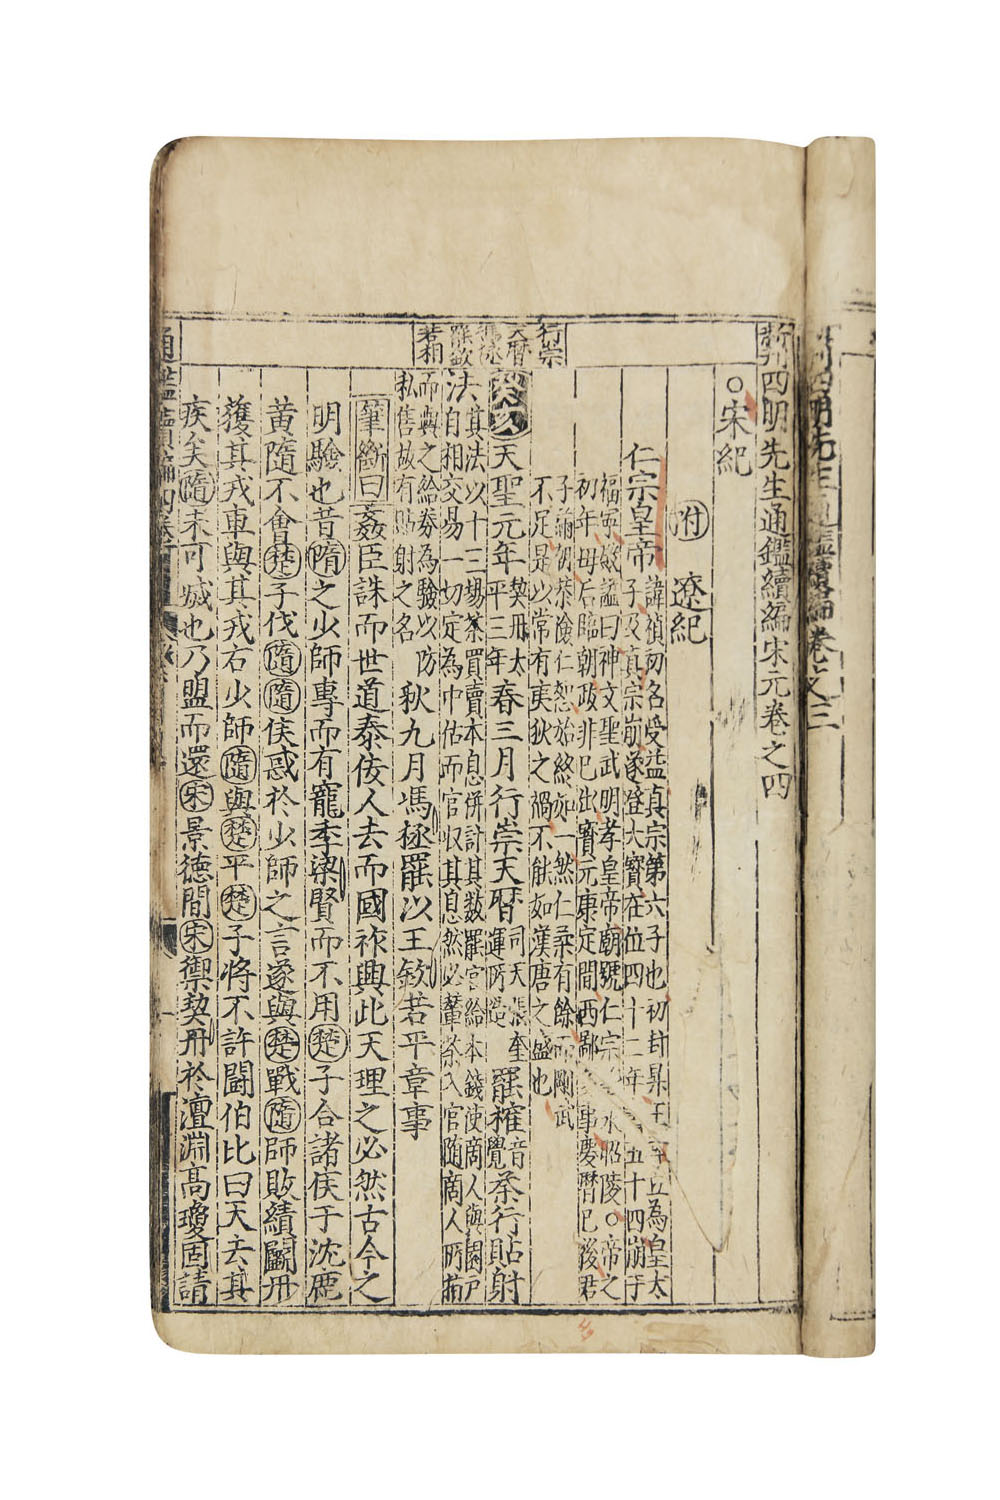 新刊四明先生通鑑續編宋元卷之四
○宋紀
附 遼紀
仁宗皇帝
諱禎初名受益真宗第六子也初封昇王
立為皇太
子及真宗崩遂登大寶在位四十二年
五十四崩于
福寧殿謚曰神文聖武明孝皇帝廟號仁宗
永昭陵○帝之
初年母后臨朝政非已出寳元康定間西鄙
事慶曆已後君
子滿朝恭儉仁恕始終如一然仁柔有餘而剛武
不足是以常有夷狄之禍不能如漢唐之盛也
癸亥天聖元年
契丹太
平三年
春三月行崇天曆
司天張奎
運所造
罷榷
音
覺
茶行貼射
法
其法以十三塲茶買賣本息併計其数罷官給本錢使商人與園戶
自相交易一切定為中估而官収其息然必輦茶入官随商人所指
而與之給劵為驗以防
私售故有貼射之名
秋九月馮拯罷以王欽若平章事
筆斷曰姦臣誅而世道泰侫人去而國祚興此天理之必然古今之
明驗也昔隋之少師專而有寵季梁賢而不用楚子合諸侯于沈鹿
黄隨不會楚子伐隨隨侯惑於少師之言遂與楚戰隨師敗績鬭丹
獲其戎車與其戎右少師隨與楚平楚子將不許鬪伯比曰天去其
疾矣隨未可㓕也乃盟而還宋景德間宋禦契丹於澶淵高瓊固請
行崇
天曆
馮拯
罷欽
若相
通鑑續編四卷
卷之三